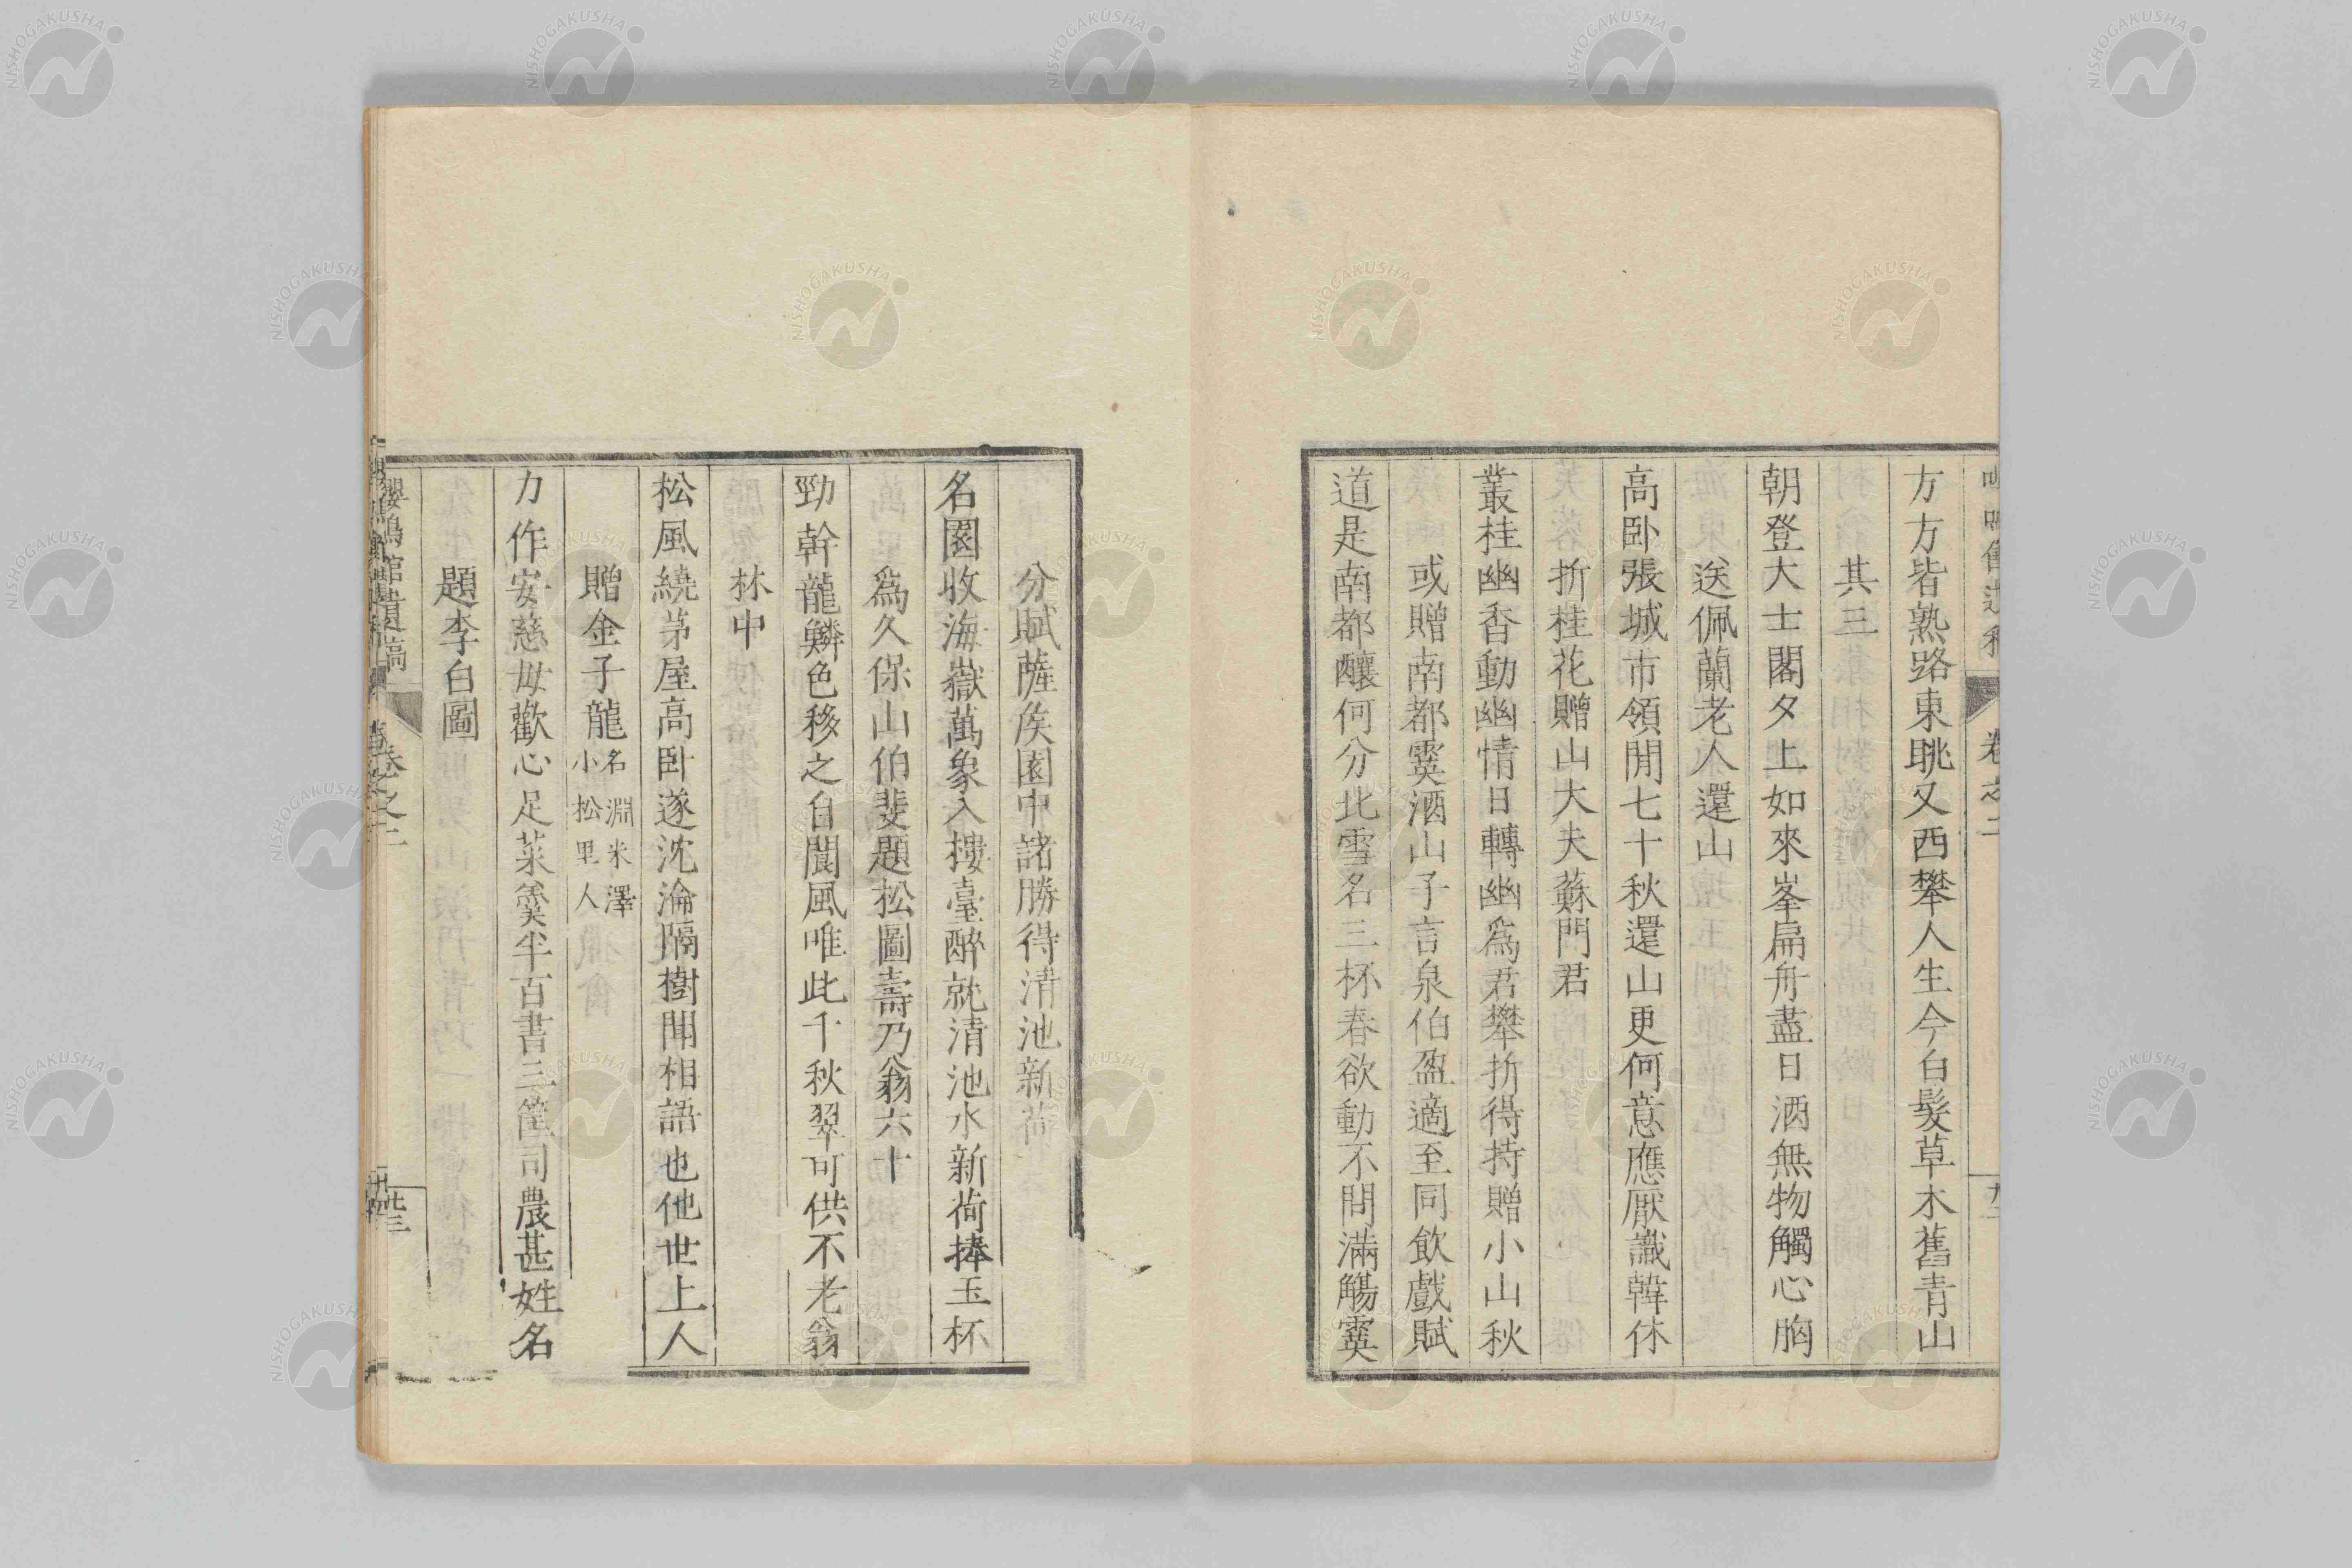 方方皆熟路東眺又西攀人生今白髮草木舊青山
其三
朝登大士閣夕上如來峯扁舟盡日酒無物觸心胸
送佩蘭老人還山
高臥張城市領閒七十秋還山更何意應厭識韓休
折桂花贈山大夫蘇門君
叢桂幽香動幽情日轉幽爲君攀折得持贈小山秋
或贈南都霙酒山子言泉伯盈適至同飲戲賦
道是南都釀何分此雪名三杯春欲動不問滿觴霙
分賦薩侯園中諸勝得清池新荷
名園收海嶽萬象入樓臺醉就清池水新荷捧玉杯
爲久保山伯斐題松圖壽乃翁六十
勁幹龍鱗色移之自閬風唯此千秋翠可供不老翁
林中
松風繞茅屋高臥遂沈淪隔樹聞相語也他世上人
贈金子龍
名淵米澤
小松里人
力作安慈母歡心足菜羹半百書三篋司農甚姓名
題李白圖
嚶鳴館遺稿
卷之二
卷之二
NISHOGAKUSHA